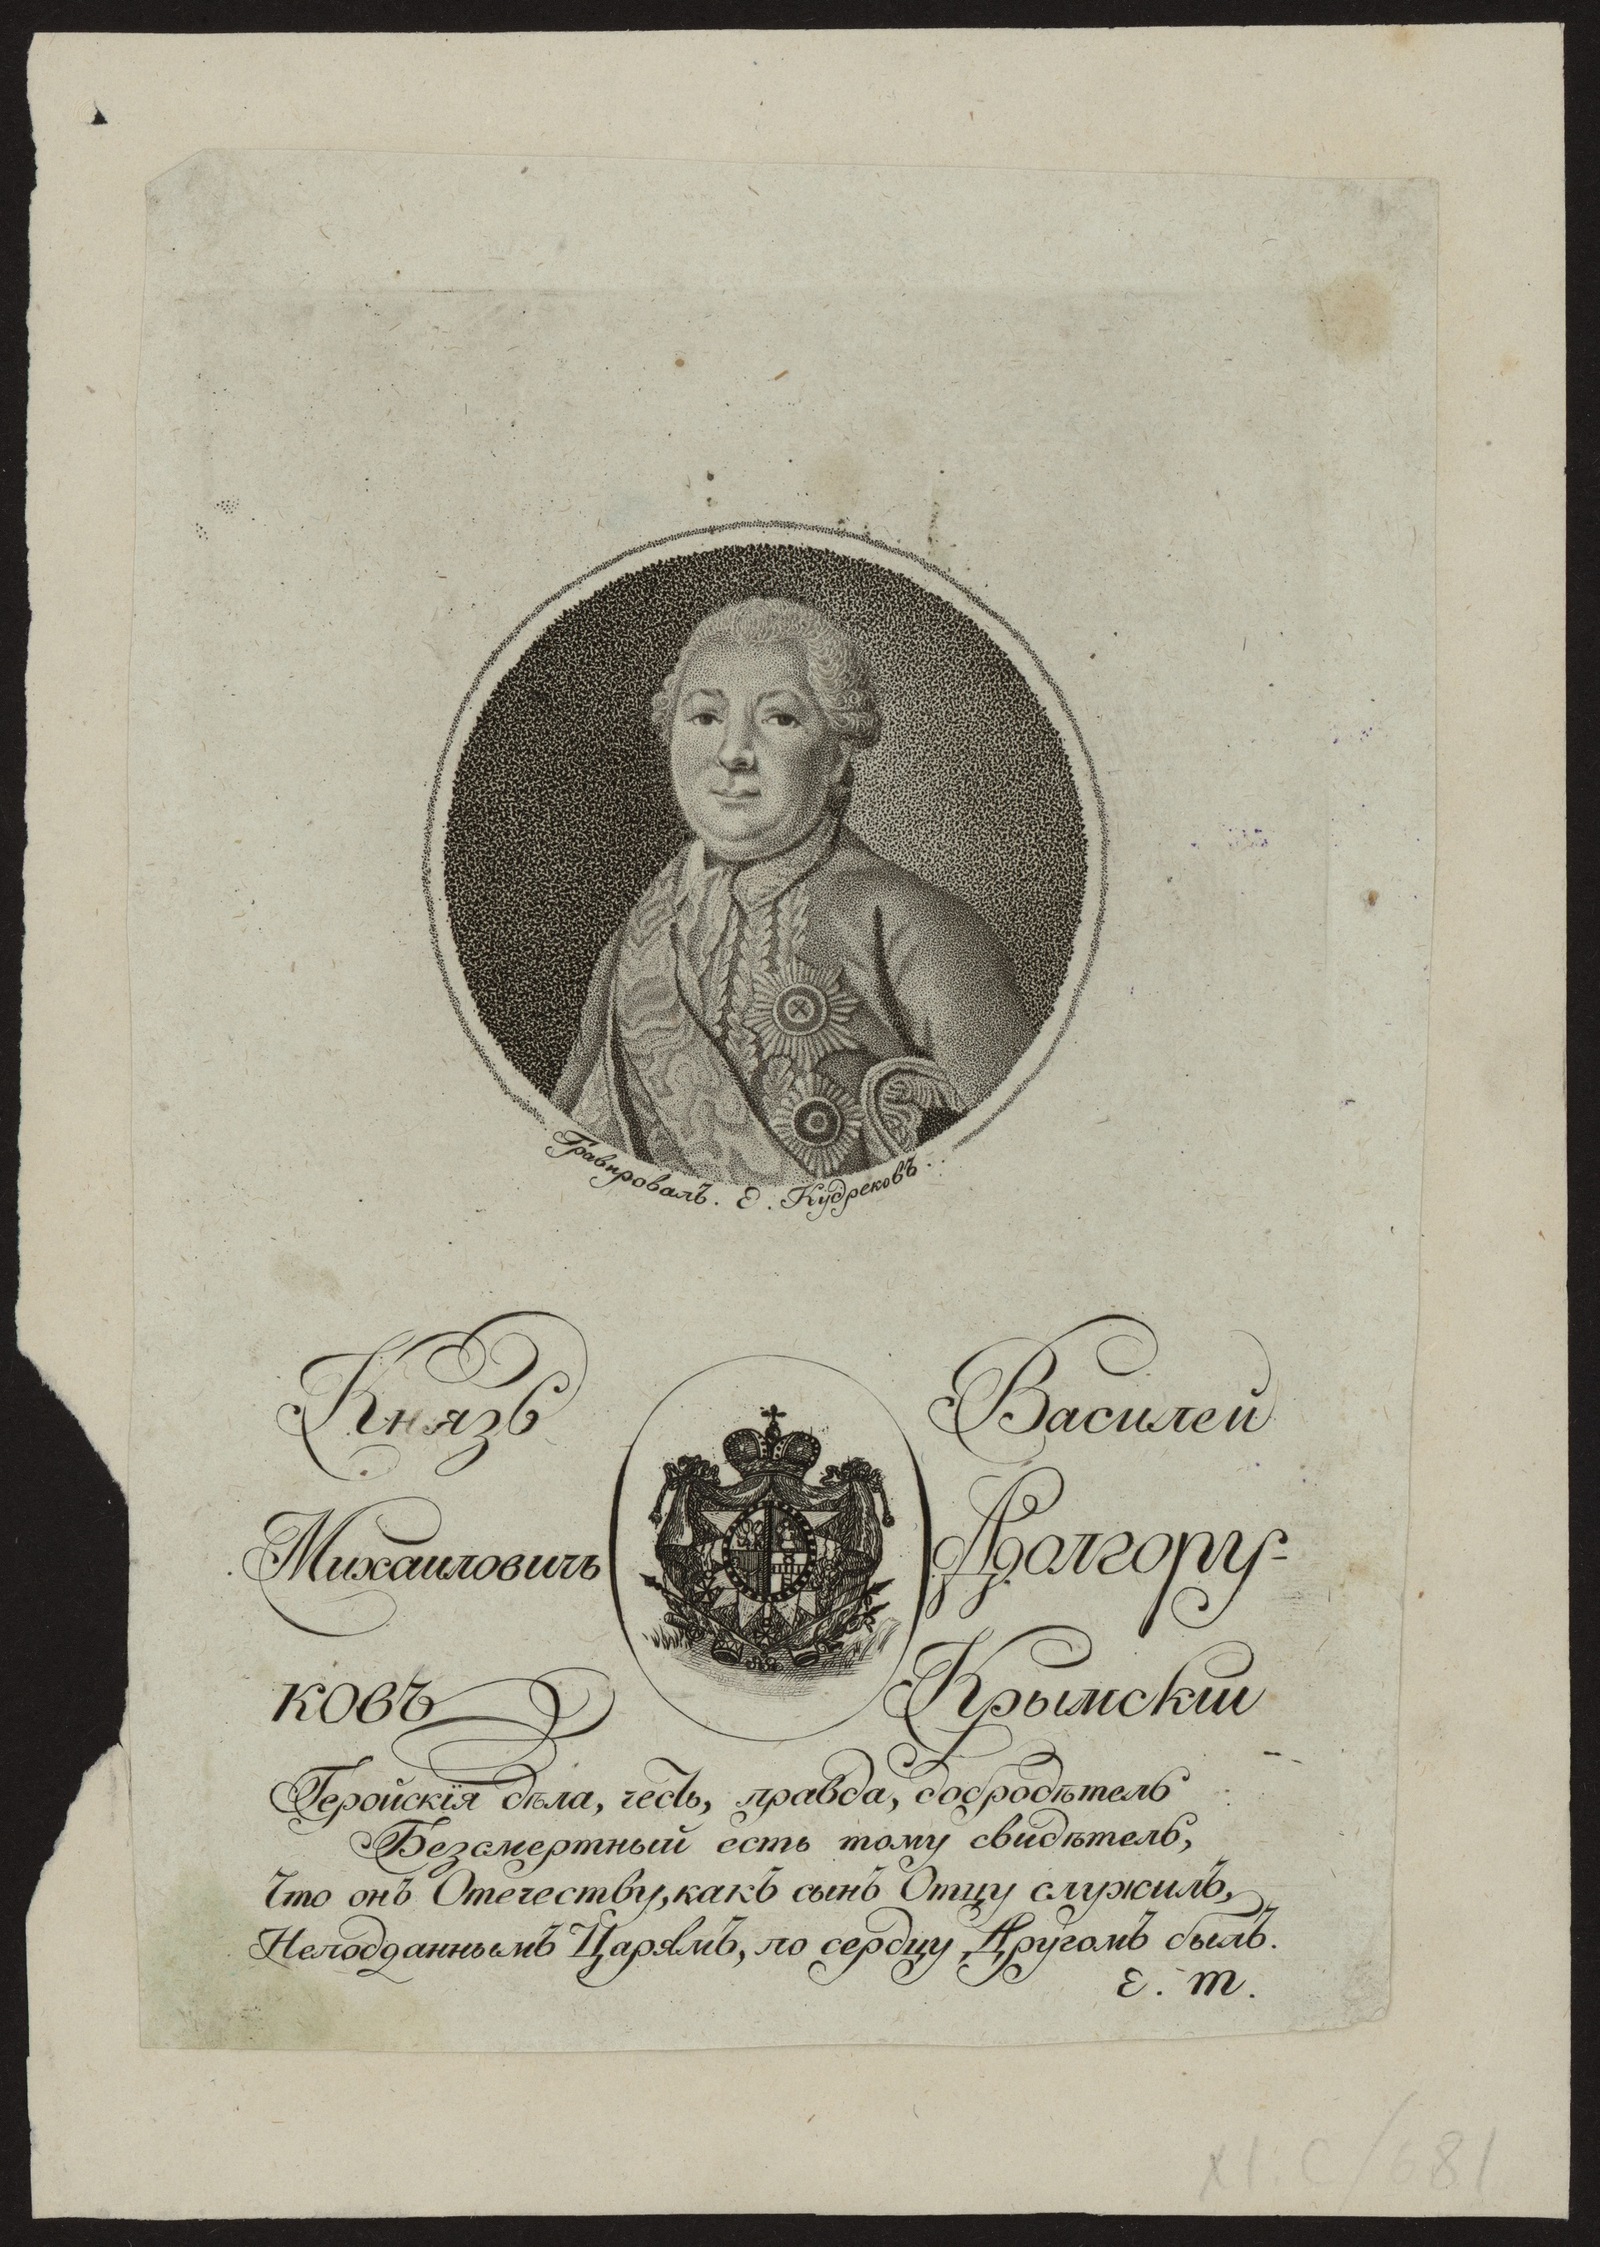 Гравировалъ. Е. Кудряковъ.
Князь Василей
Михаиловичь Долгору-
ковъ Крымскіи
Геройскія дѣла, честь, правда, добродѣтель
Безсмертный есть тому свидѣтель,
Что онъ Отечеству, какъ сынъ Отцу служилъ,
Неподданнымъ Царямъ, по сердцу Другомъ былъ.
Е. Т.
XI. C/681